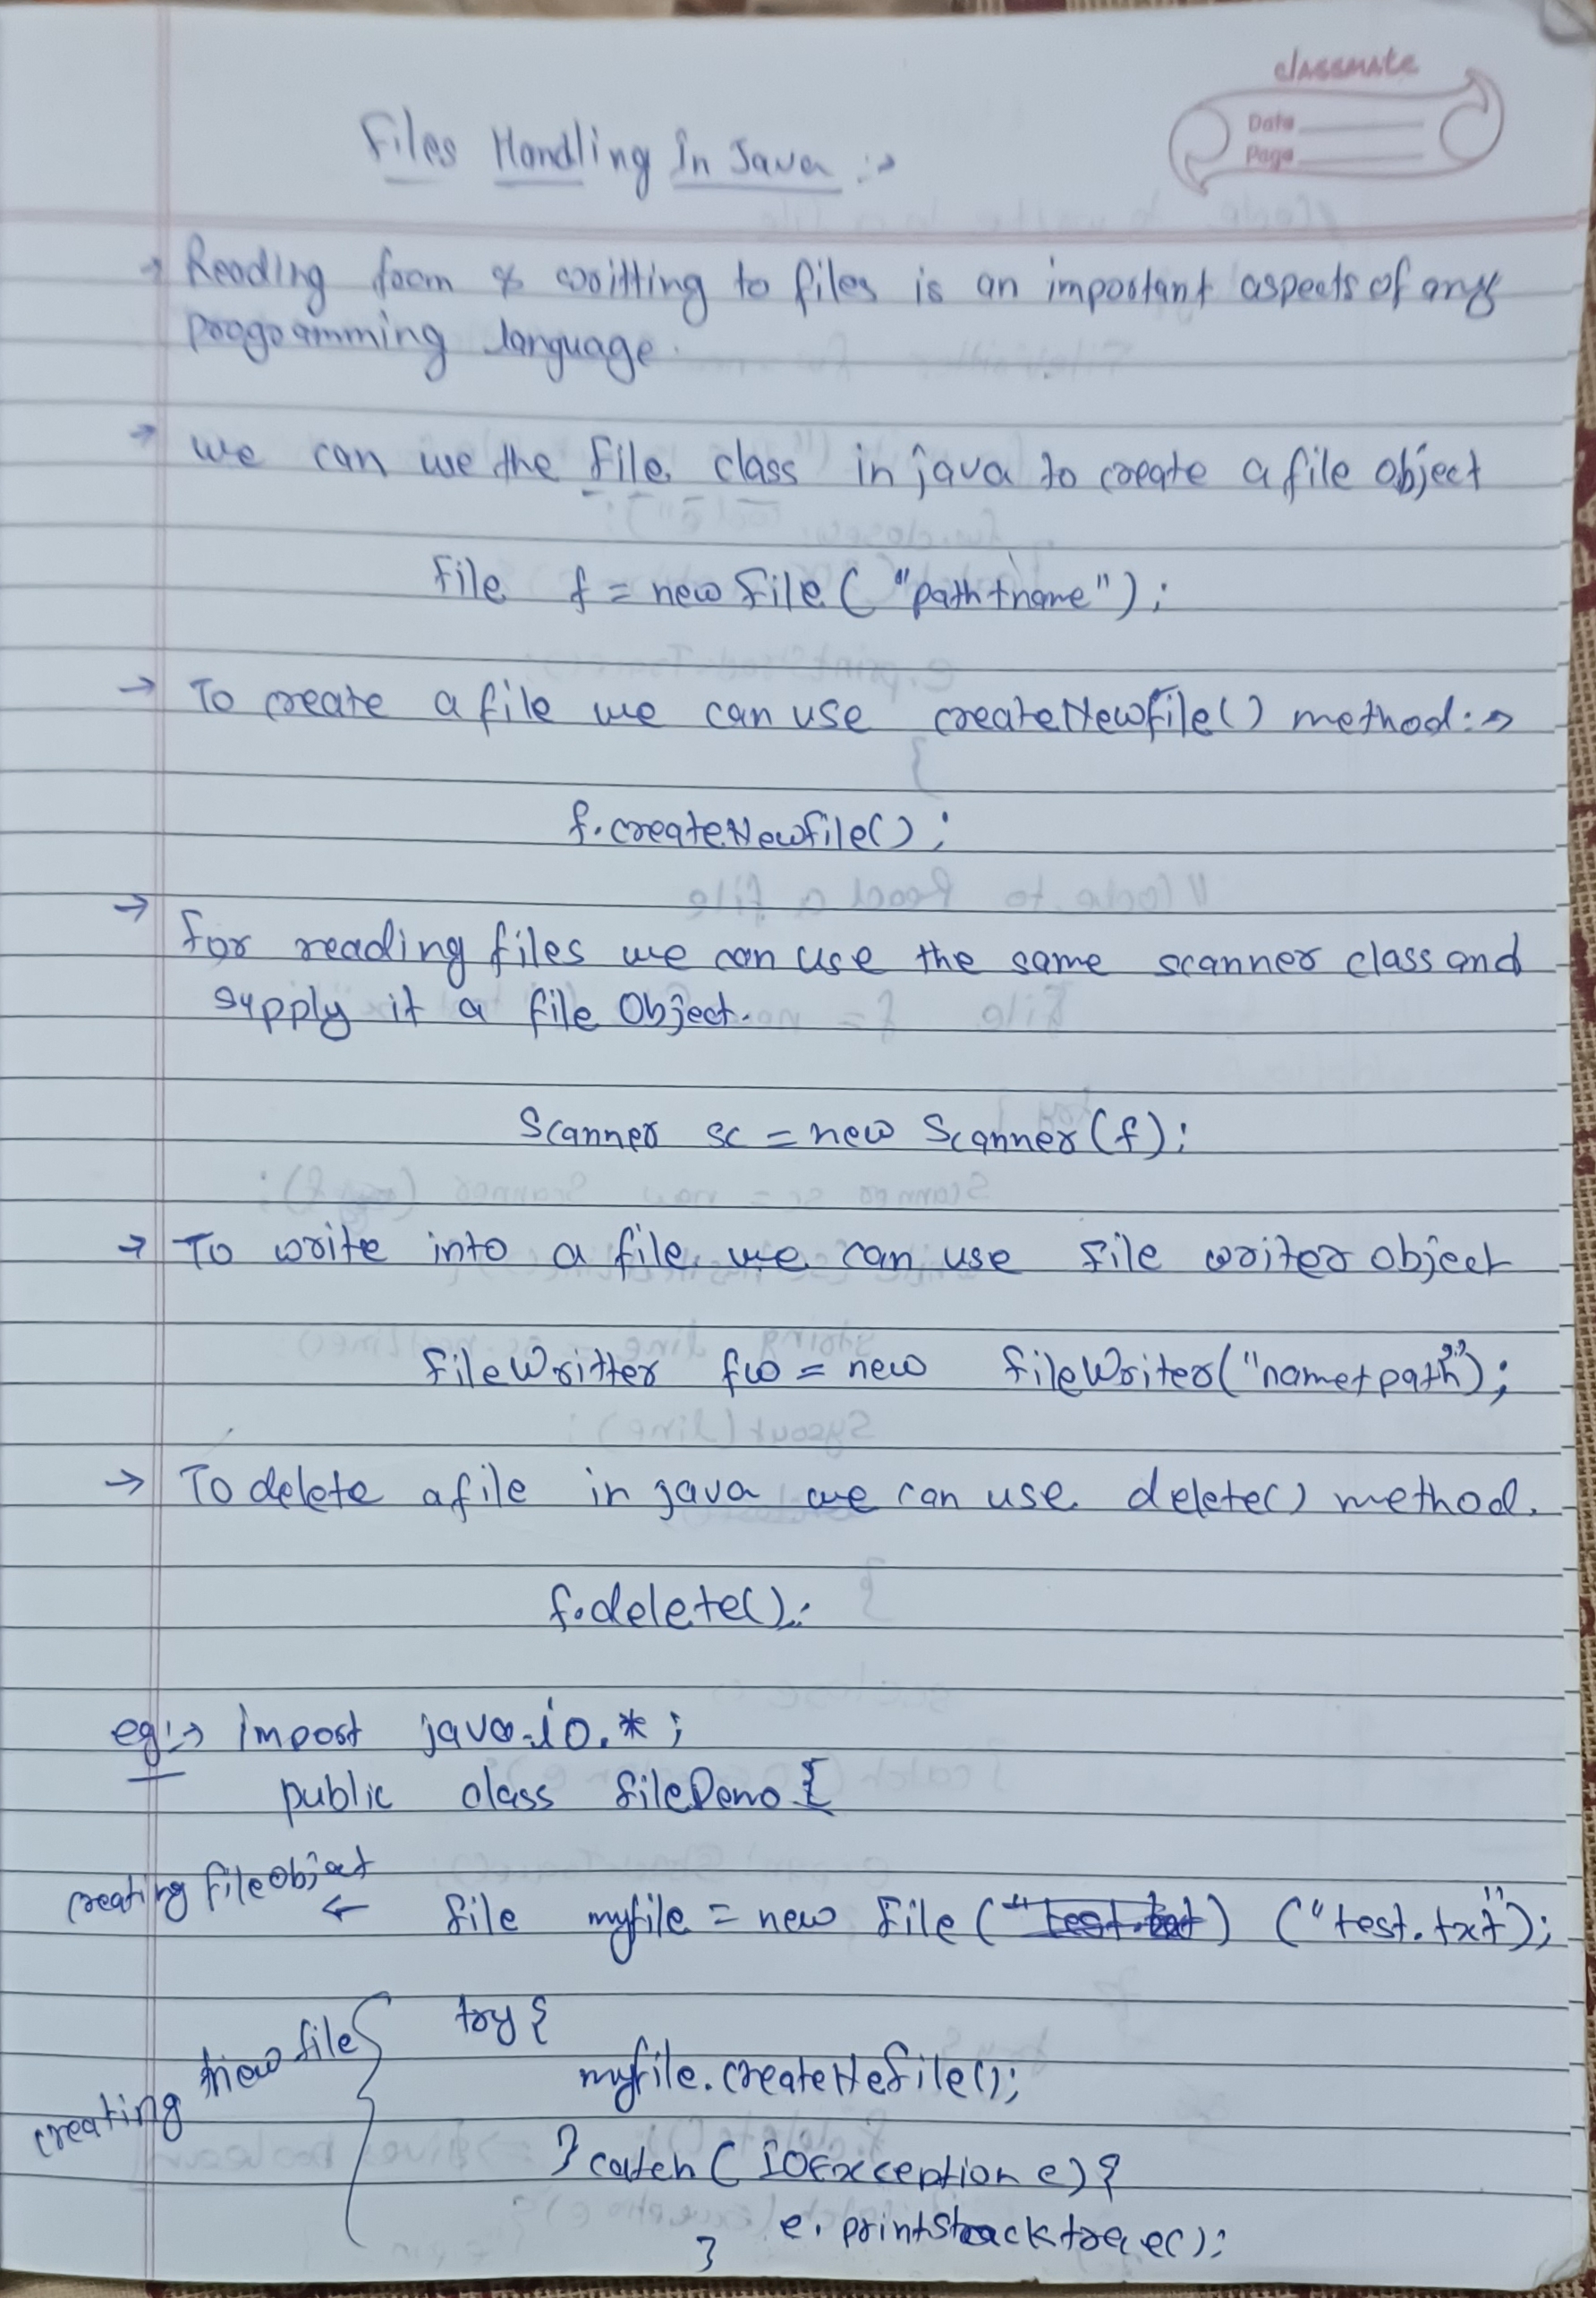 classmate
Date
Page
Files Handling In Java :->
-> Reading from & writting to files is an important aspects of any
programming language.
-> we can we the File class in java to create a file object
File f = new File ( "path+name" );
-> To create a file we can use createNewfile() method :->
f.createNewfile();
-> For reading files we can use the same scanner class and
supply it a file Object.
Scanner sc = new Scanner (f);
-> To write into a file we can use File writer object
FileWritter fw = new FileWriter("name+path");
-> To delete a file in java we can use delete() method.
f.delete();
eg:-> Import java.io.*;
public class FileDemo {
creating file object <- File myfile = new File ( "test.txt") ("test.txt");
creating new file { try {
myfile.createNefile();
} catch ( IOException e) {
e. printStracktrace();
}